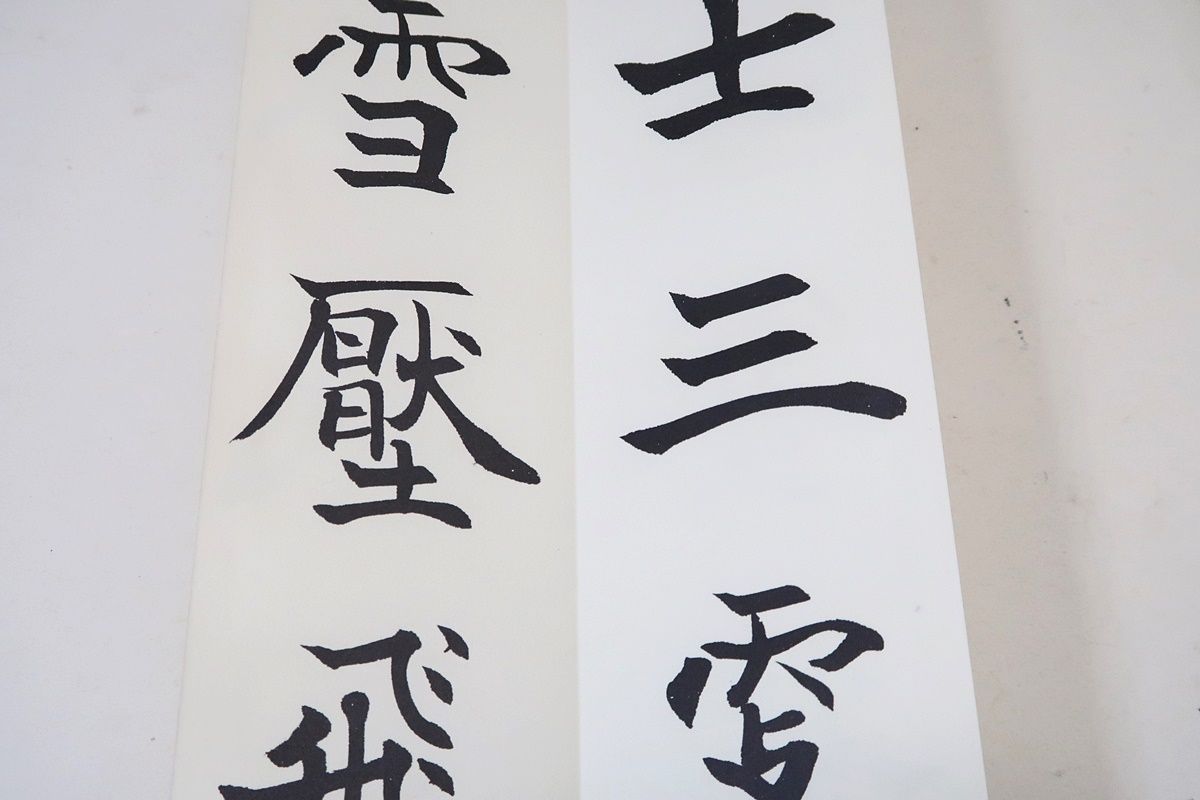 士三
雪壓飛